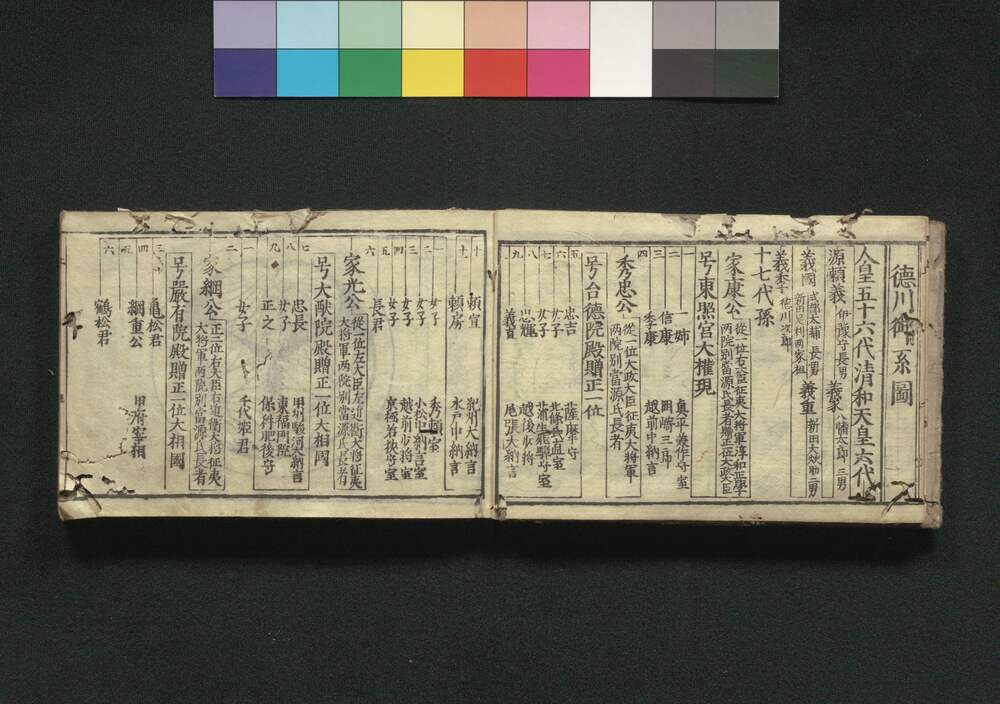 德川御系圖
人皇五十六代清和天皇六代
源頼義 伊豫守長男 義家 八幡太郎 三男
義國 式部大輔 長男 義重 新田大炊助二男
新田足利両家祖
義季 德川次郎
十七代孫
家康公 從一位右大臣征夷大将軍淳和奨学
両院別當源氏長者贈正一位大政大臣
号東照宮大權現
一 一姉 奥平美作守室
二 信康 岡崎三郎
三 秀康 越前中納言
四 秀忠公 從一位大政大臣征夷大将軍
両院別當源氏長者
号台德院殿贈正一位
五 忠吉 薩摩守
六 女子 北條氏直室
七 女子 蒲生飛騨守室
八 忠輝 越後少将
九 義直 尾張大納言
十 頼宣 紀州大納言
十一 頼房 水戸中納言
一 女子 秀頼室
二 女子 小松中納言室
三 女子 越前少将室
四 女子 京極若狭守室
五 長君
六 家光公 從一位左大臣左近衛大将征夷
大将軍両院別當源氏長者
号大猷院殿贈正一位大相國
七 忠長 甲州駿河大納言
八 女子 東福門院
九 正之 保科肥後守
一 女子 千代姫君
二 家綱公 正二位右大臣右近衛大将征夷
大将軍両院別當源氏長者
号嚴有院殿贈正一位大相國
三 亀松君
四 綱重公 甲府宰相
五
六 鶴松君